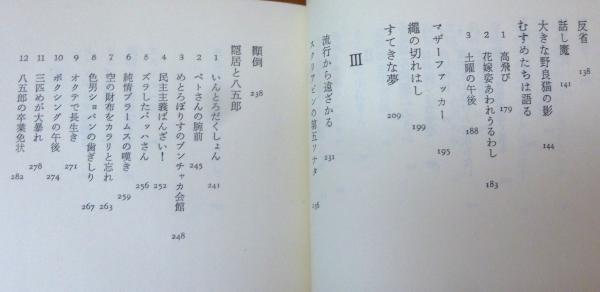 反省 138
話し魔 141
大きな野良猫の影 144
むすめたちは語る
1 高飛び 179
2 花嫁姿あわれうるわし 183
3 土曜の午後 188
マザーファッカー 195
繩の切れはし 199
すてきな夢 209
III
流行から遠ざかる 231
スクリアビンの第五ソナタ 236
顚倒 238
隠居と八五郎
1 いんとろだくしょん 241
2 ペトさんの腕前 245
3 めとろぽりすのブンチャカ会館 248
4 民主主義ばんざい! 252
5 ズラしたバッハさん 256
6 純情ブラームスの嘆き 259
7 空の財布をカラリと忘れ 263
8 色男ショパンの歯ぎしり 267
9 オクテで長生き 271
10 ボクシングの午後 274
11 三匹めが大暴れ 278
12 八五郎の卒業免状 282